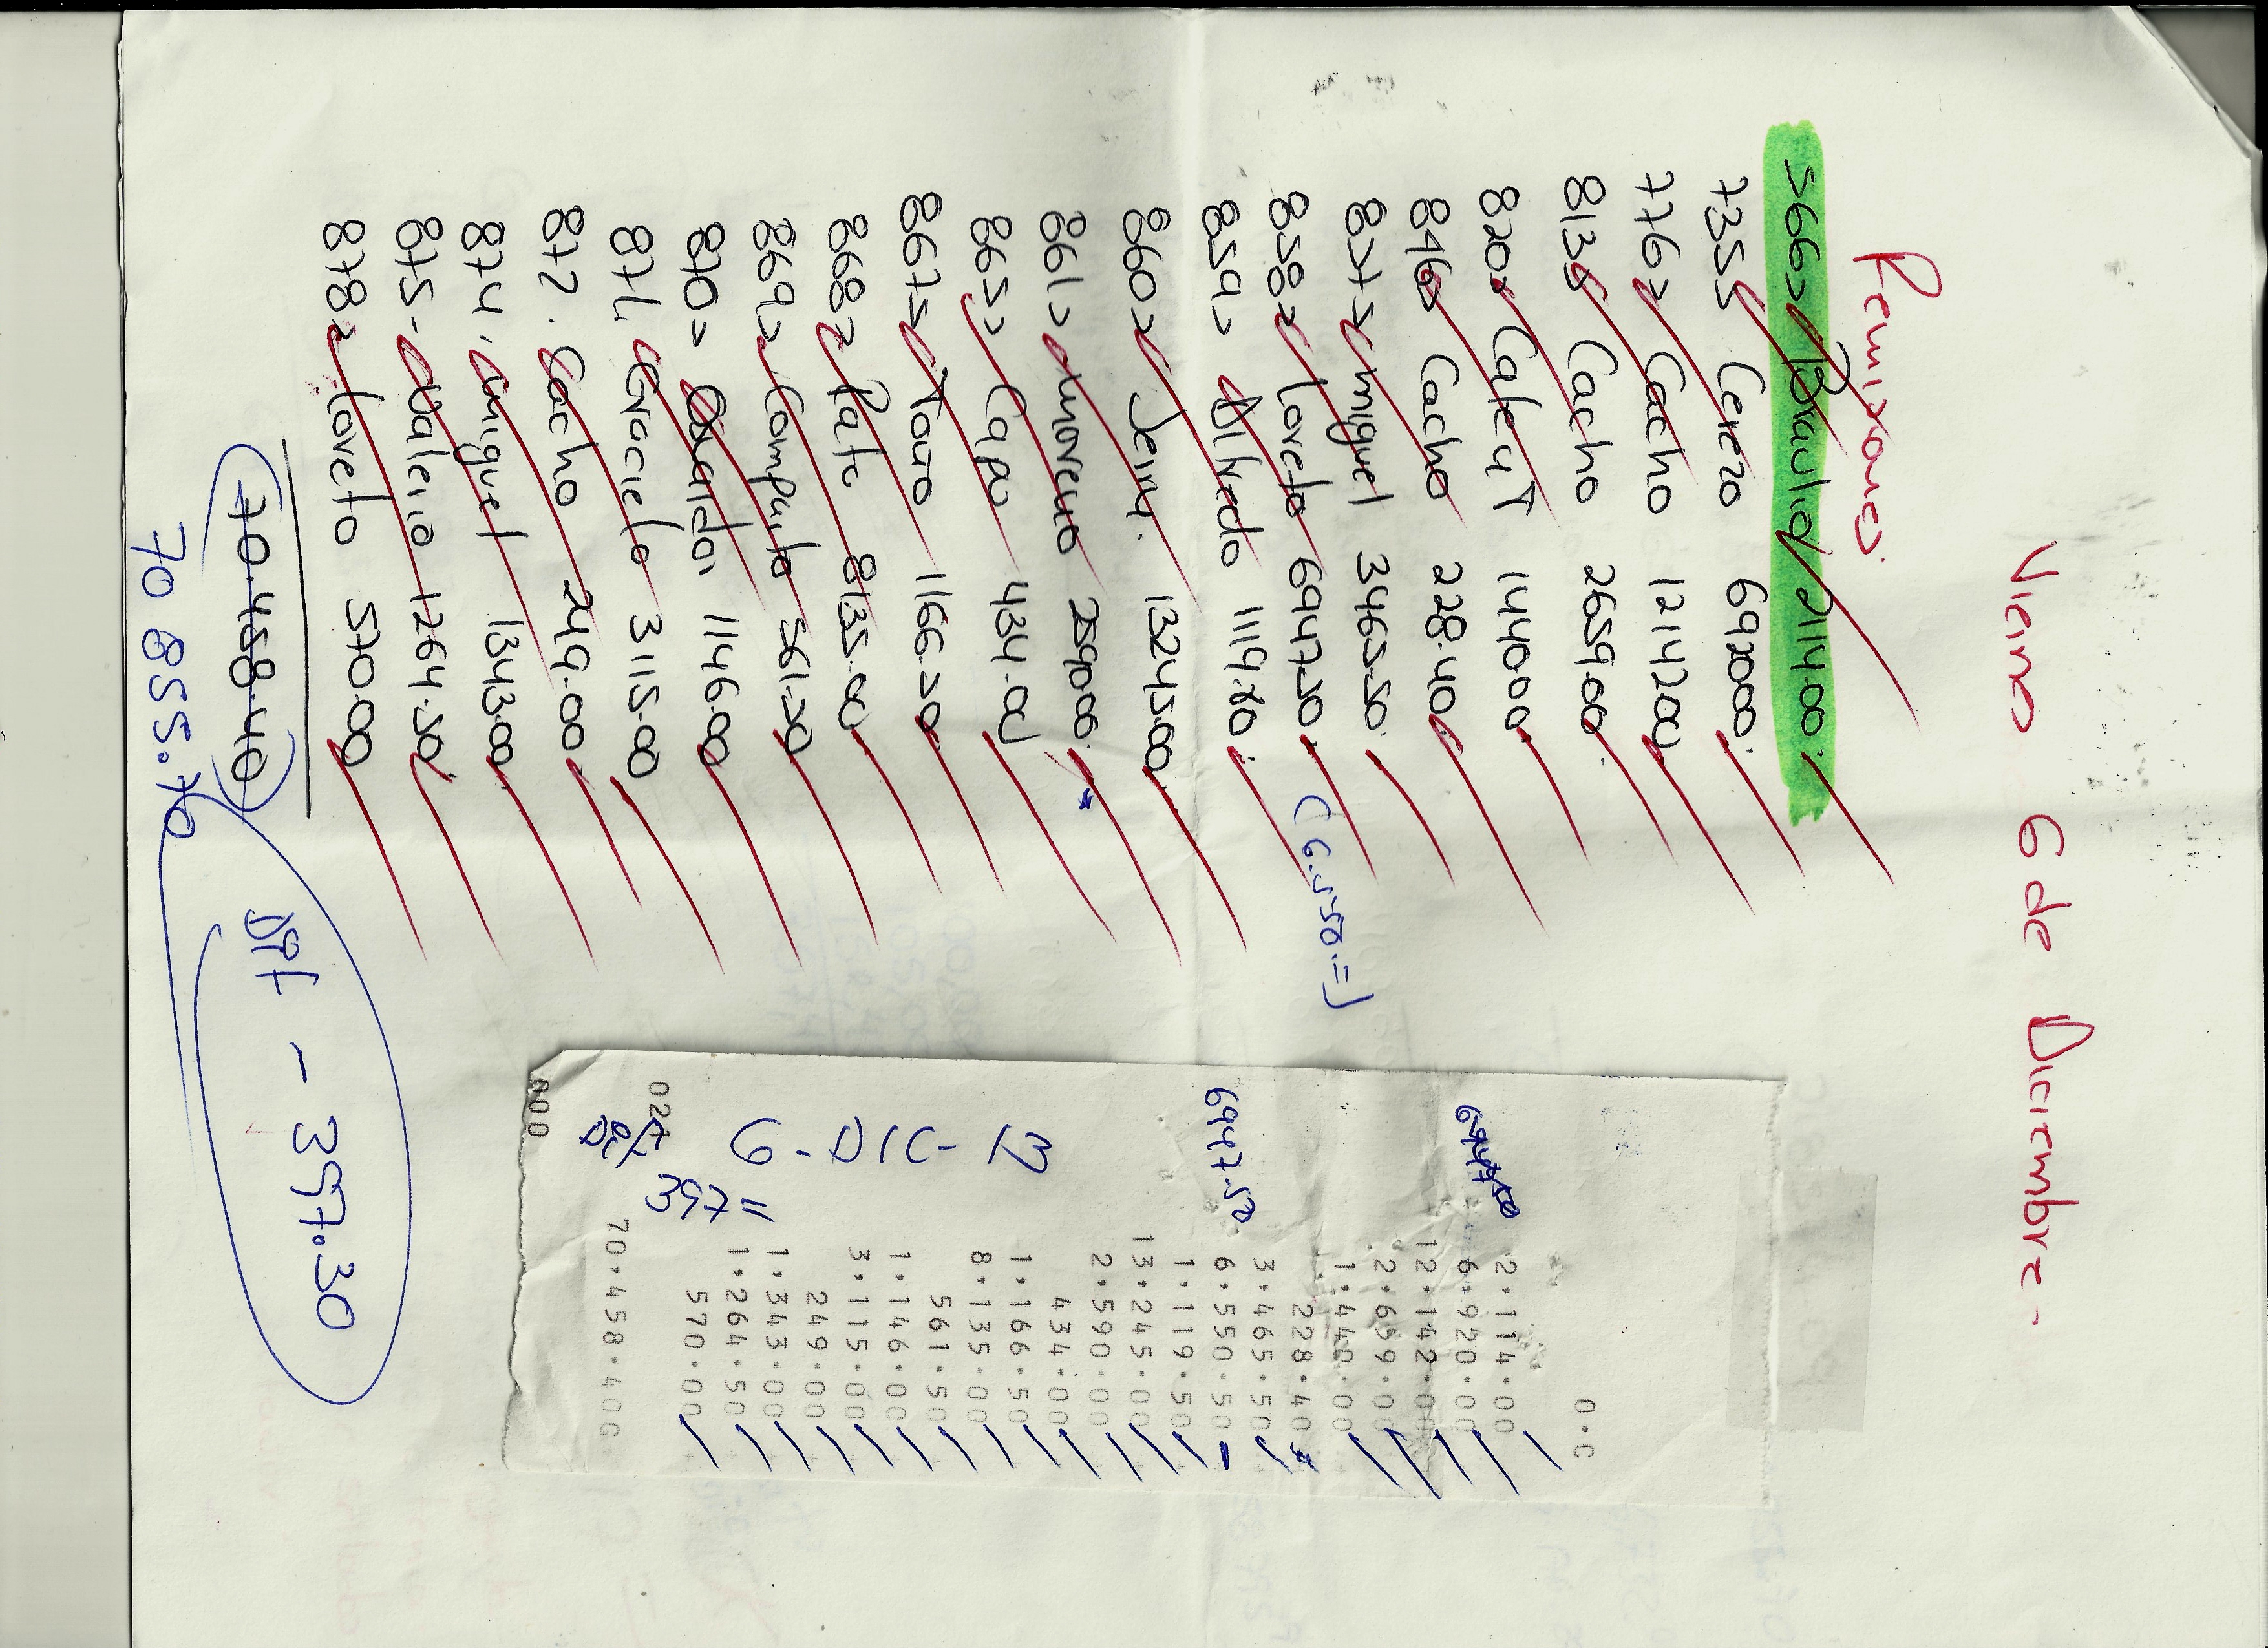 Viernes 6 de Diciembre -
Remisiones.
566> Braulio 2114.00.
735> Cerezo 6920.00.
776> Cacho 12142.00
813> Cacho 2659.00.
820> Caleut 1440.00
846> Cacho 228.40
857> Miguel 3465.50.
858> Loreto 6947.50. (6.550.=)
859> Alfredo 1119.50.
860> Jeiny. 13245.00.
861> Moreno 2590.00.
865> Capo 434.00
867> Toro 1166.50.
868> Pato 8135.00
869> Compaito 561.50
870> 1146.00
871. Graciela 3115.00
872. Cacho 249.00.
874. Miguel 1343.00.
875. Valerio 1264.50.
878> Loreto 570.00
70.458.40
70 855.70
Dif - 397.30
0.C
2.114.00
6.920.00
12.142.00
2.659.00
1.440.00
228.40
3.465.50
6.550.50
1.119.50
13.245.00
2.590.00
434.00
1.166.50
8.135.00
561.50
1.146.00
3.115.00
249.00
1.343.00
1.264.50
570.00
70.458.40G
6947.50
6947.50
6-DIC-13
397=
021
000